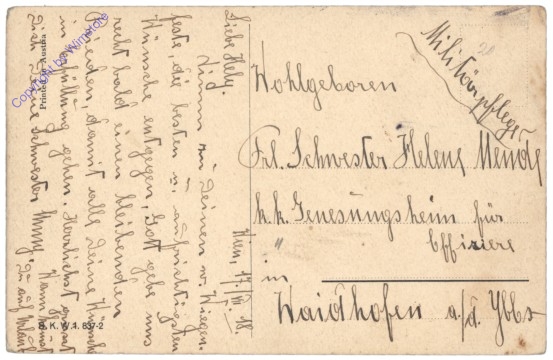 Liebe Hely.
Nimm zu Deinem w. Wiegen-
feste, die besten u. aufrichtigsten
Wünsche entgegen, Gott gebe uns
recht bald einen bleibenden
Frieden, damit alle Deine Wünsche
in Erfüllung gehen. Herzlichst grüsst
Dich Deine Schwester
Wann kommst
Du auf Urlaub
Wien, 17. 18
Militärpflege
Wohlgeboren
Frl. Schwester Helene Mende
k. k. Genesungsheim für
" Offiziere
in
Waidhofen a/d. Ybbs
Printed in Austria
B. K. W. I. 837-2
Copyright by Wimstore